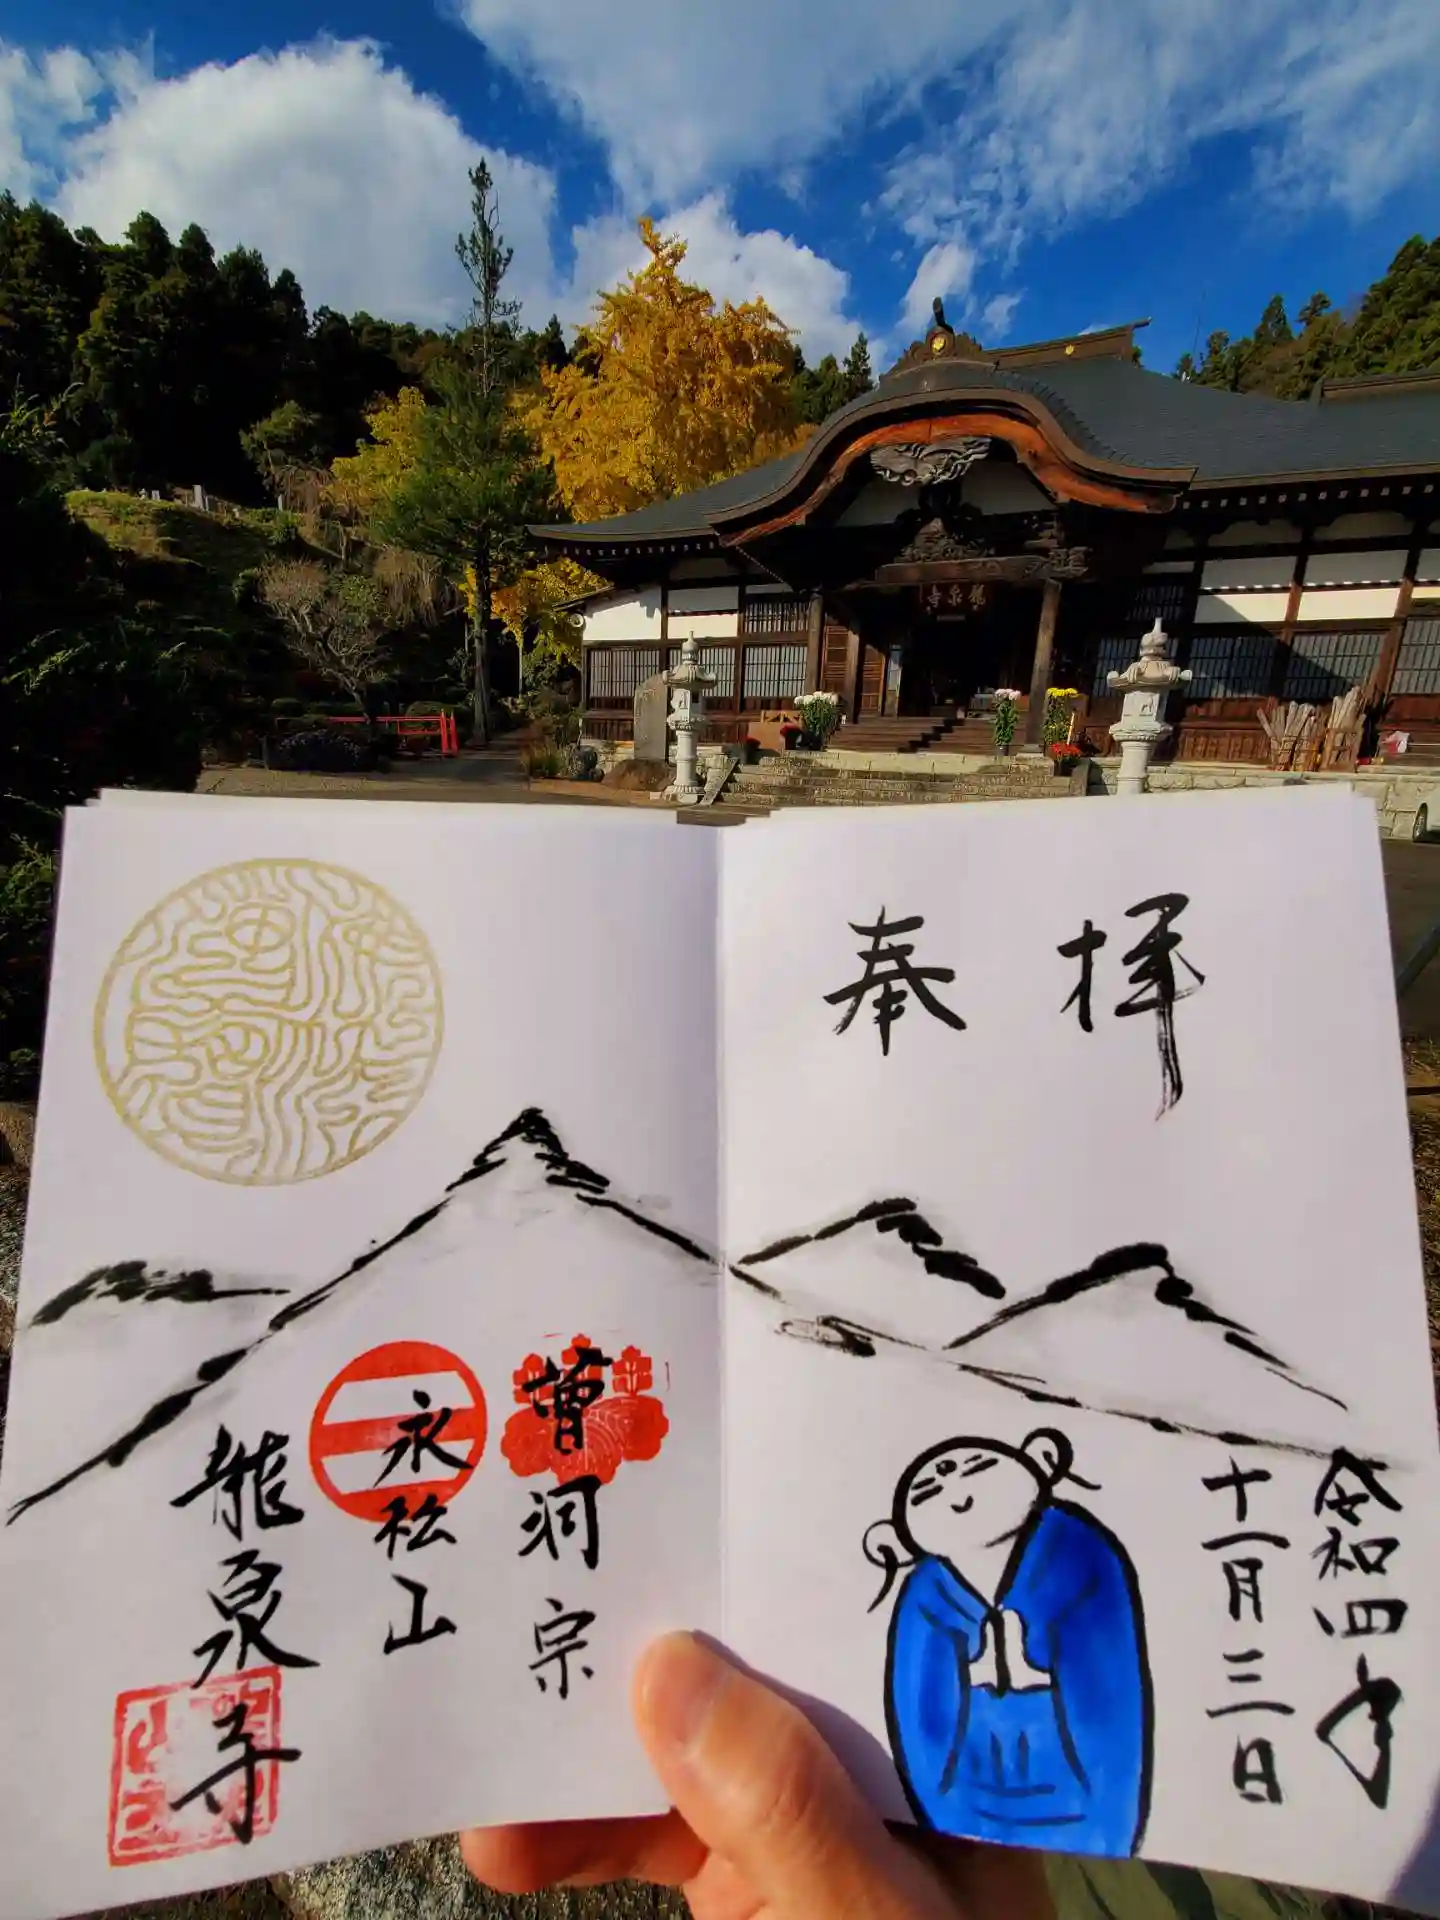 龍泉寺
奉拝
令和四年
十一月三日
曹洞宗
永松山
龍泉寺